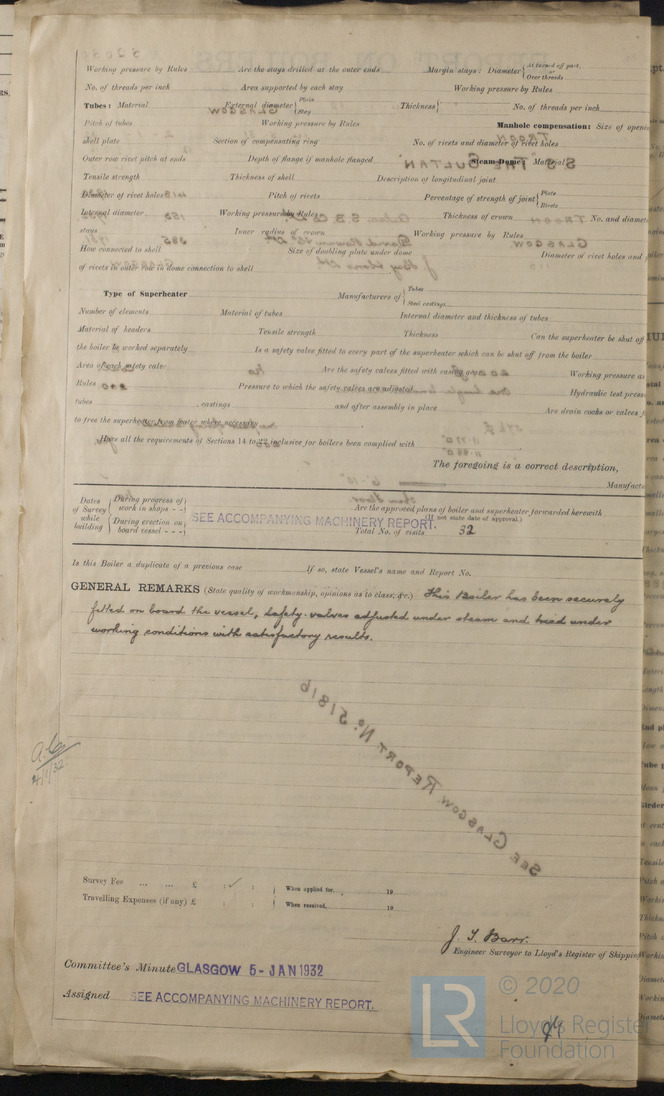 Working pressure by Rules Are the stays drilled at the outer ends Margin stays: Diameter { At turned off part, Over threads
No. of threads per inch Area supported by each stay Working pressure by Rules
Tubes: Material External diameter { Plain Stay Thickness { No. of threads per inch
Pitch of tubes Working pressure by Rules Manhole compensation: Size of openi
shell plate Section of compensating ring No. of rivets and diameter of rivet holes
Outer row rivet pitch at ends Depth of flange if manhole flanged Steam Dome: Material
Tensile strength Thickness of shell Description of longitudinal joint
Diameter of rivet holes Pitch of rivets Percentage of strength of joint { Plate Rivets
Internal diameter Working pressure by Rules Thickness of crown No. and diamete
stays Inner radius of crown Working pressure by Rules
How connected to shell Size of doubling plate under dome Diameter of rivet holes and
of rivets in outer row in dome connection to shell
Type of Superheater Manufacturers of { Tubes Steel castings
Number of elements Material of tubes Internal diameter and thickness of tubes
Material of headers Tensile strength Thickness Can the superheater be shut off
the boiler be worked separately Is a safety valve fitted to every part of the superheater which can be shut off from the boiler
Area of each safety valve Are the safety valves fitted with easing gear Working pressure as
Rules Pressure to which the safety valves are adjusted Hydraulic test press
tubes castings and after assembly in place Are drain cocks or valves f
to free the superheater from water where necessary
Have all the requirements of Sections 14 to 22 inclusive for boilers been complied with
The foregoing is a correct description,
Manufactu
Dates of Survey while building { During progress of work in shops - - } Are the approved plans of boiler and superheater forwarded herewith
{ During erection on board vessel - - - } SEE ACCOMPANYING MACHINERY REPORT. (If not state date of approval.)
Total No. of visits 32
Is this Boiler a duplicate of a previous case If so, state Vessel's name and Report No.
GENERAL REMARKS (State quality of workmanship, opinions as to class, &c.) This Boiler has been securely
fitted on board the vessel, safety valves adjusted under steam and tried under
working conditions with satisfactory results.
SEE GLASGOW REPORT No. 51816
4/1/32
Survey Fee ... ... £ : ✓ : When applied for, 19
Travelling Expenses (if any) £ : : When received, 19
J. T. Barr.
Engineer Surveyor to Lloyd's Register of Shipping
Committee's Minute GLASGOW 5 - JAN 1932
Assigned SEE ACCOMPANYING MACHINERY REPORT.
LR © 2020
Lloyd's Register
Foundation